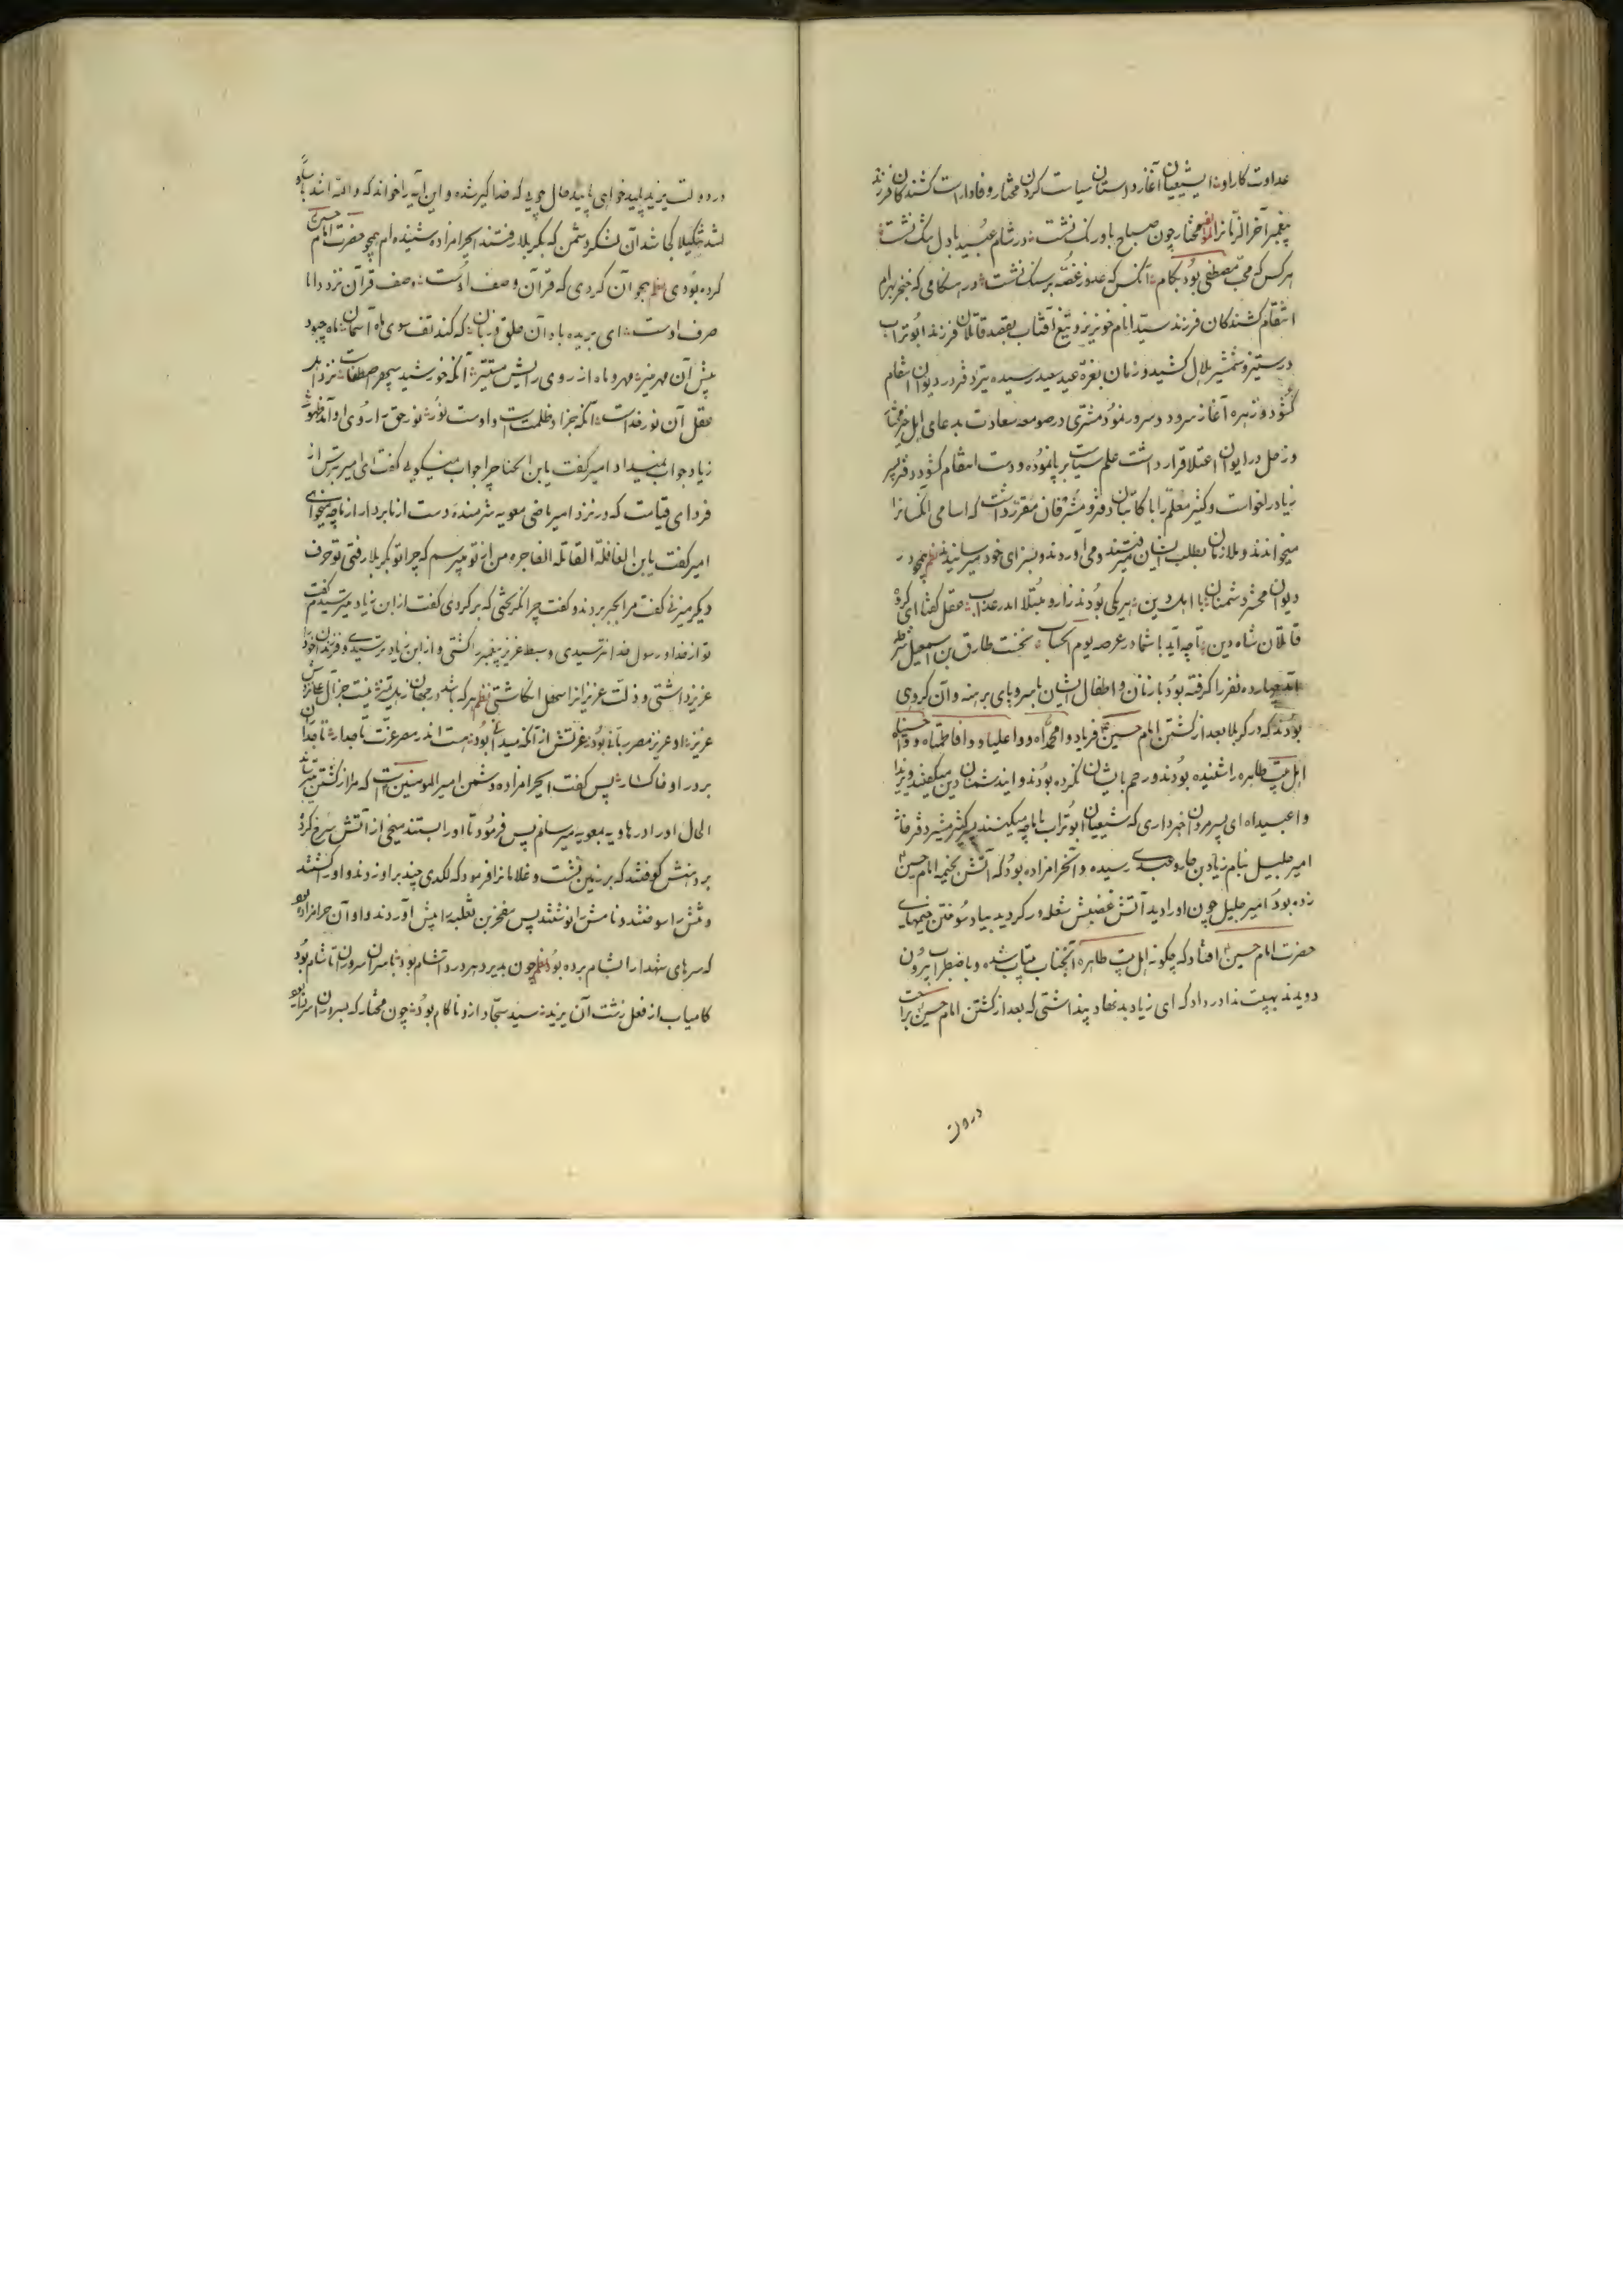 عداوت کار او با شیعیان آغاز داستان سیاست کردن مختار وفادار است کشندکان فرزند
پیغمبر آخر الزمانرا لمؤلفه مختار چون صباح باورنک نشست در شام عبید با دل تنک نشست
هر کس که محب مصطفی بود بکام آنکس که عدو ز غصه بر سنک نشست در هنکامی که خنجر بهرام
انتقام کشندکان فرزند سید انام خونریز و تیغ آفتاب بقصد قاتلان فرزند ابوتراب
در ستیز و شمشیر هلال کشیده و زمان بغره عید سعید رسیده تیر دفتر در دیوان انتقام
کشود و زهره آغاز سرود و سرور نمود مشتری در صومعه سعادت بدعای اهل خیر مختار
و زحل در ایوان اعتلا قرار داشت علم سیاست بر پا نموده و دست انتقام کشود دفتر پسر
زیاد را خواست و کثیر معلم را با کاتبان دفتر و مشرفان مقرر داشت که اسامی آنکسانرا
میخواندند و ملازمان بطلب ایشان میرفتند و می آوردند و بسزای خود میرسانیدند نظم همچو در
دیوان محشر دشمنان با اهل دین هر یکی بودند زار و مبتلا اندر عذاب عقل کفتا ای کروه
قاتلان شاه دین تا چه آید با شما در عرصه یوم الحساب نخست طارق بن اسمعیل
چهارده نفر را کرفته بود با زنان و اطفال ایشان با سر و پای برهنه و آن کروهی
بودند که در کربلا بعد از کشتن امام حسین فریاد وا محمداه و وا علیاه و وا فاطمتاه و وا حسیناه
اهل بیت طاهره را شنیده بودند و رحم بایشان نکرده بودند و ایندشمنان دین میکفتند ویزیدا
وا عبیداه ای پسر مردان خبر داری که شیعیان ابوتراب با ما چه میکنند پس کثیر میر دفتر خانه
امیر جلیل بنام زیاد بن جارود عبدی رسیده و آنحرامزاده بود که آتش بخیمه امام حسین
زده بود امیر جلیل چون او را دید آتش غضبش شعله ور کردید بیاد سوختن خیمهای
حضرت امام حسین افتاد که چکونه اهل بیت طاهره آنجناب بیتاب شده و باضطراب بیرون
دویدند بهیبت ندا در داد که ای زیاد بد نهاد پنداشتی که بعد از کشتن امام حسین براحت
درولت
در دولت یزید پلید خواهی پایید حال چونی که خدا کیر شده و این آیه را خواند که و الله اشد باسا و
اشد تنکیلا کجا شد آن لشکر دشمن که بکربلا رفتند ایحرامزاده شنیده ام هجو حضرت امام حسین
کرده بودی نظم هجو آن کردی که قرآن وصف اوست وصف قرآن نزد دانا
حرف اوست ای بریده باد آن حلق و زبان که کند تف سوی ماه آسمان ماه چبود
پیش آن مهر منیر مهر و ماه از روی رایش مستنیر آنکه خورشید سپهر اصطفاست نزد اهل
عقل آن نور خداست آنکه جز او ظلمت است و اوست نور نور حق از روی او آمد ظهور
زیاد جواب نمیداد امیر کفت یا بن الخنا چرا جواب نمیکویی کفت ای امیر بترس از
فردای قیامت که در نزد امیر ماضی معویه شرمنده دست از ما بردار از ما چه میخواهی
امیر کفت یا بن الغافلة القاتله الفاجره من از تو میپرسم که چرا تو بکربلا رفتی تو حرف
دیکر میزنی کفت مرا بجبر بردند و کفت چرا نکریختی که برکردی کفت از ابن زیاد میترسیدم کفت
تو از خدا و رسول خدا نترسیدی و سبط عزیز پیغمبر را کشتی و از ابن زیاد ترسیدی و فرزندان خود را
عزیز داشتی و ذلت عزیزانرا سهل انکاشتی نظم هر که باشد در جهان ز اهل تمیز نیست جز آل علی نزدش
عزیز او عزیز مصر ربانی بود عزتش از آنکه میدانی بود هست اندر مصر عزت تاجدار تاجداران
بر در او خاکسار پس کفت ایحرامزاده دشمن امیر المومنین است که مرا از کشتن میترساند
الحال او را در هاویه بمعویه میرسانم پس فرمود تا او را بستند میخی از آتش سرخ کرده
بر دهنش کوفتند که بر زمین نشست و غلامانرا فرمود که لکدی چند بر او زدند و او را کشتند
و تنش را سوختند و نامش را نوشتند پس مفخر بن ثعلبه را پیش آوردند و او آن حرامزاده بود
که سرهای شهدا را بشام برده بود نظم چون بدیر دهر در رد انتقام بود با سران سروران تا شام بود
کامیاب از فعل زشت آن یزید سید سجاد ازو ناکام بود چون مختار که بسروران